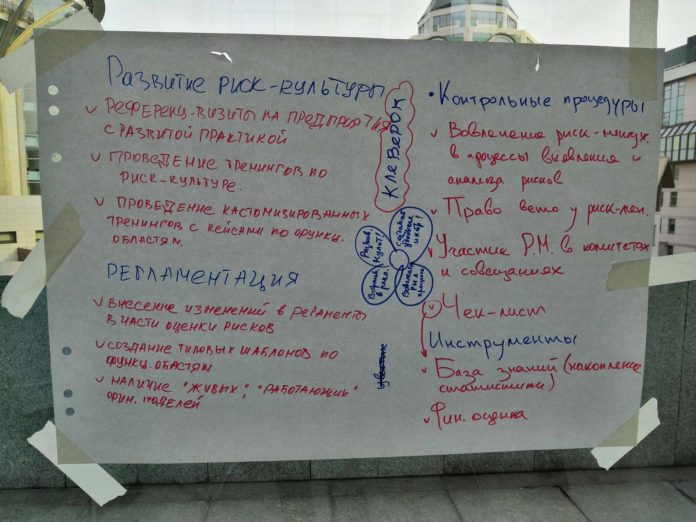 Развитие риск-культуры
✓ Референц-визиты на предприятия
с развитой практикой
✓ Проведение тренингов по
риск-культуре
✓ Проведение кастомизированных
тренингов с кейсами по функц.
областям.
Регламентация
✓ Внесение изменений в регламенты
в части оценки рисков
✓ Создание типовых шаблонов по
функц. областям
✓ Наличие "живых", "работающих"
фин. моделей
КлеВеРОК
Развив.
культ.
• Контрольные процедуры
✓ Вовлечение риск-менедж.
в процессы выявления и
анализа рисков
✓ Право вето у риск-мен.
✓ Участие Р.М. в комитетах
и совещаниях
✓ Чек-лист
Инструменты
✓ База знаний (накопление
статистики)
✓ Фин. оценка